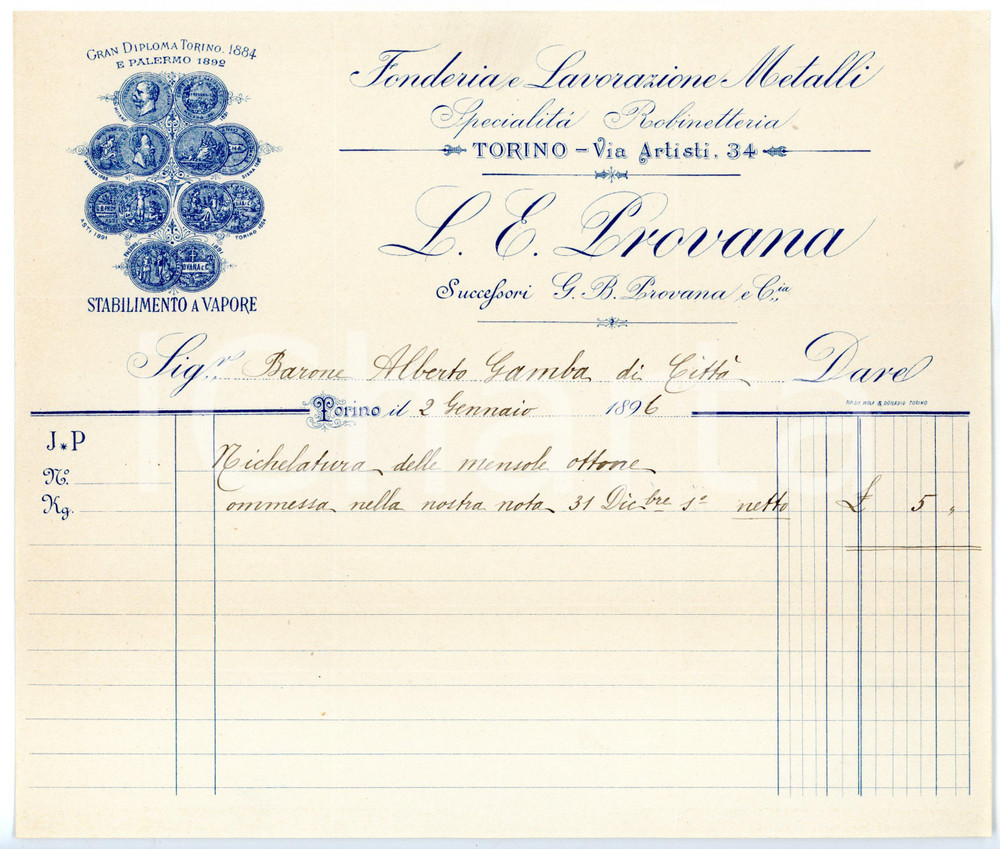 GRAN DIPLOMA TORINO. 1884
E PALERMO 1892
ASTI 1891
TORINO 1884
STABILIMENTO A VAPORE
Fonderia e Lavorazione Metalli
Specialitá Robinetteria
TORINO - Via Artisti. 34
L. E. Provana
Successori G. B. Provana e C.ia
Sigr. Barone Alberto Gamba di Città Dare
Torino il 2 Gennaio 1896
J*P
No.
Kg.
Nichelatura delle mensole ottone
ommessa nella nostra nota 31 Dicbre so netto £ 5 "